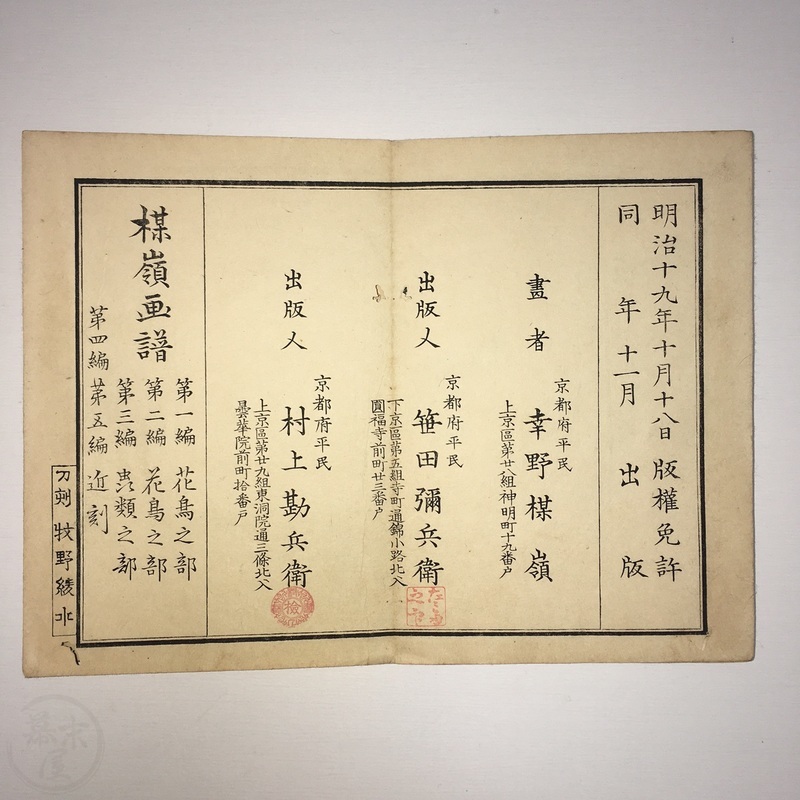 明治十九年十月十八日版權免許
同年十一月出版
畫者
京都府平民
幸野楳嶺
上京區第廿八組神明町十九番戸
出版人
京都府平民
笹田彌兵衛
下京區第五組寺町通錦小路北入
圓福寺前町廿三番戸
出版人
京都府平民
村上勘兵衛
檢
上京區第廿九組東洞院通三條北入
曇華院前町拾番戸
楳嶺画譜
第一編 花鳥之部
第二編 花鳥之部
第三編 虫類之部
第四編 第五編 近刻
刀刻 牧野綾水
幕末屋